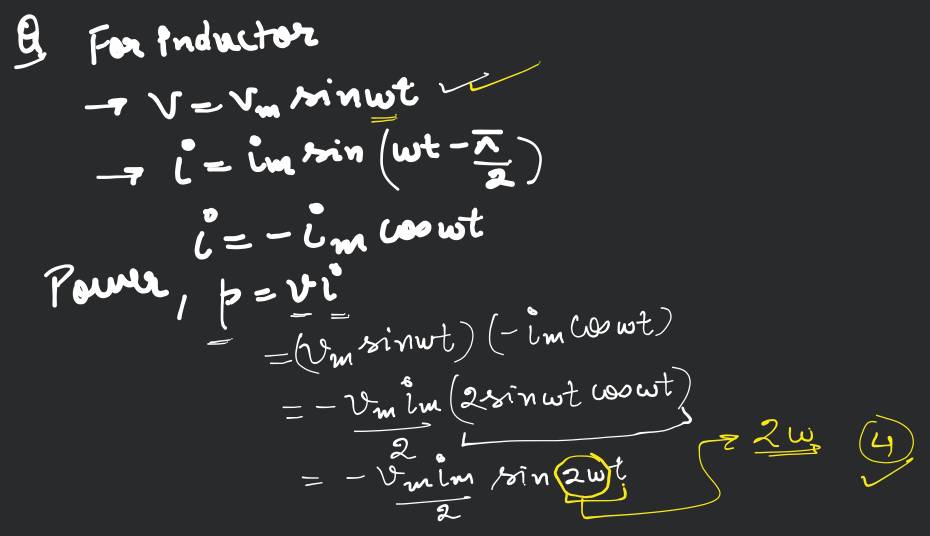 Q For Inductor
→ V = Vm sinωt
→ i = im sin (ωt - π/2)
i = - im cosωt
Power, p = vi
= (Vm sinωt) (- im cosωt)
= - Vm im/2 (2 sinωt cosωt)
= - Vm im/2 sin 2ωt → 2ω (4)